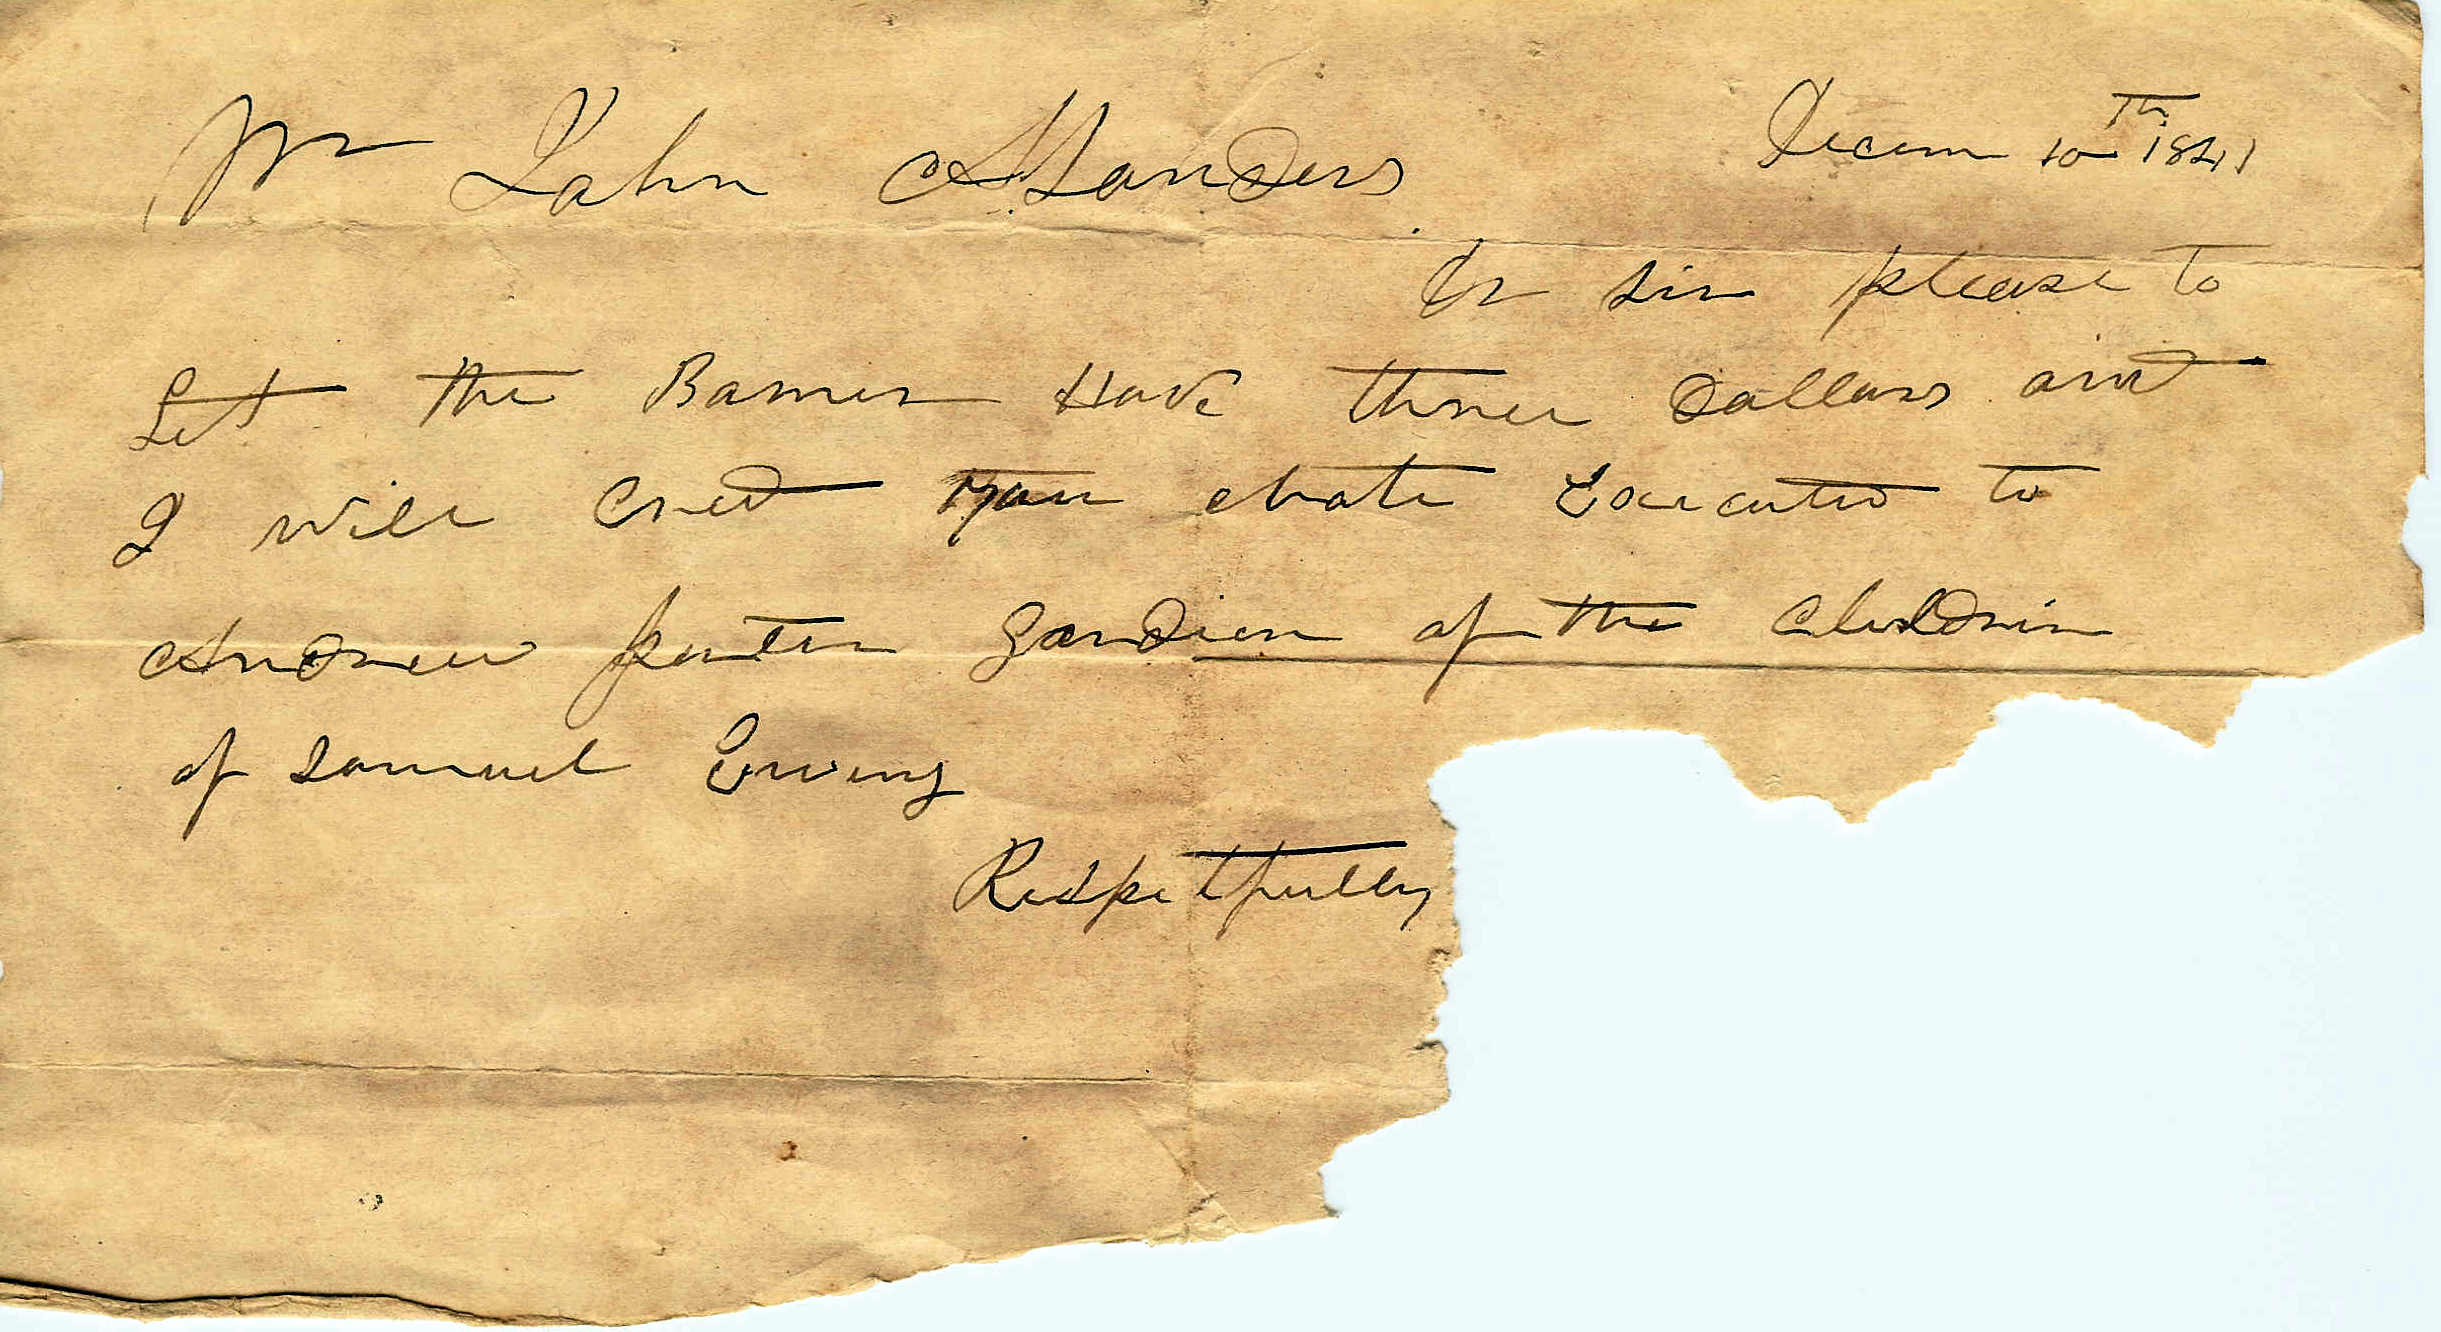 Mr John Sanders Decem 10th 1841
Dr sir please to
Let the Barrer Have three Dollars and
I will Cred your Note Executed to
Andrew porter gardien of the Children
of Samuel Ewing
Respetfully